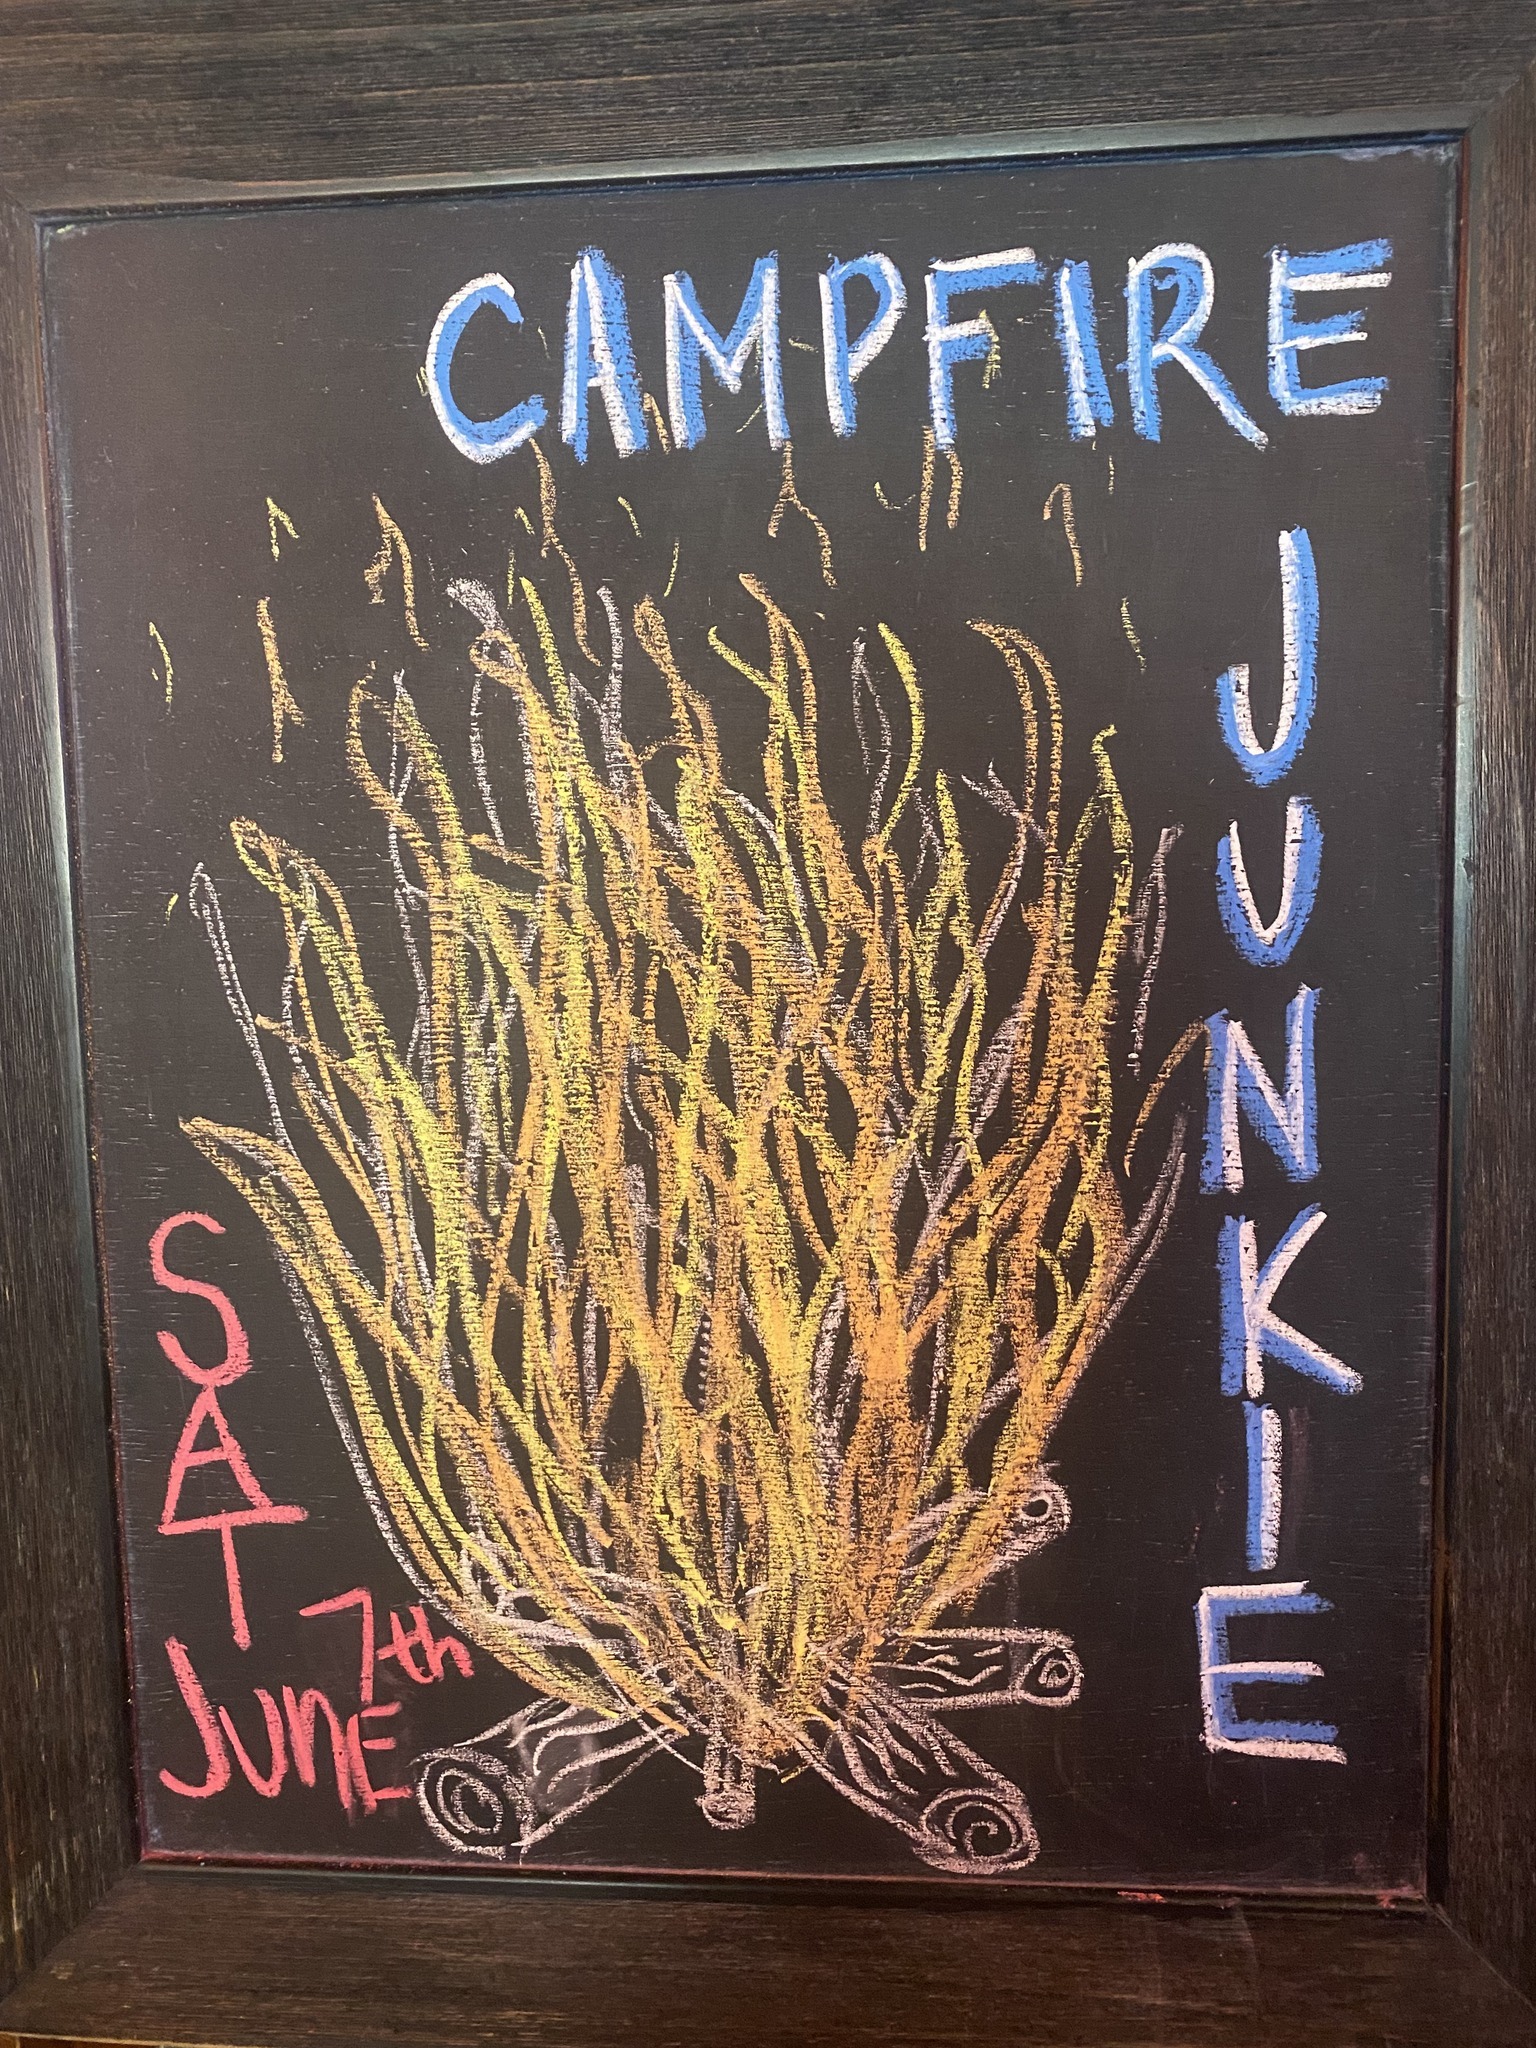 CAMPFIRE
JUNKIE
SAT
JUNE 7th